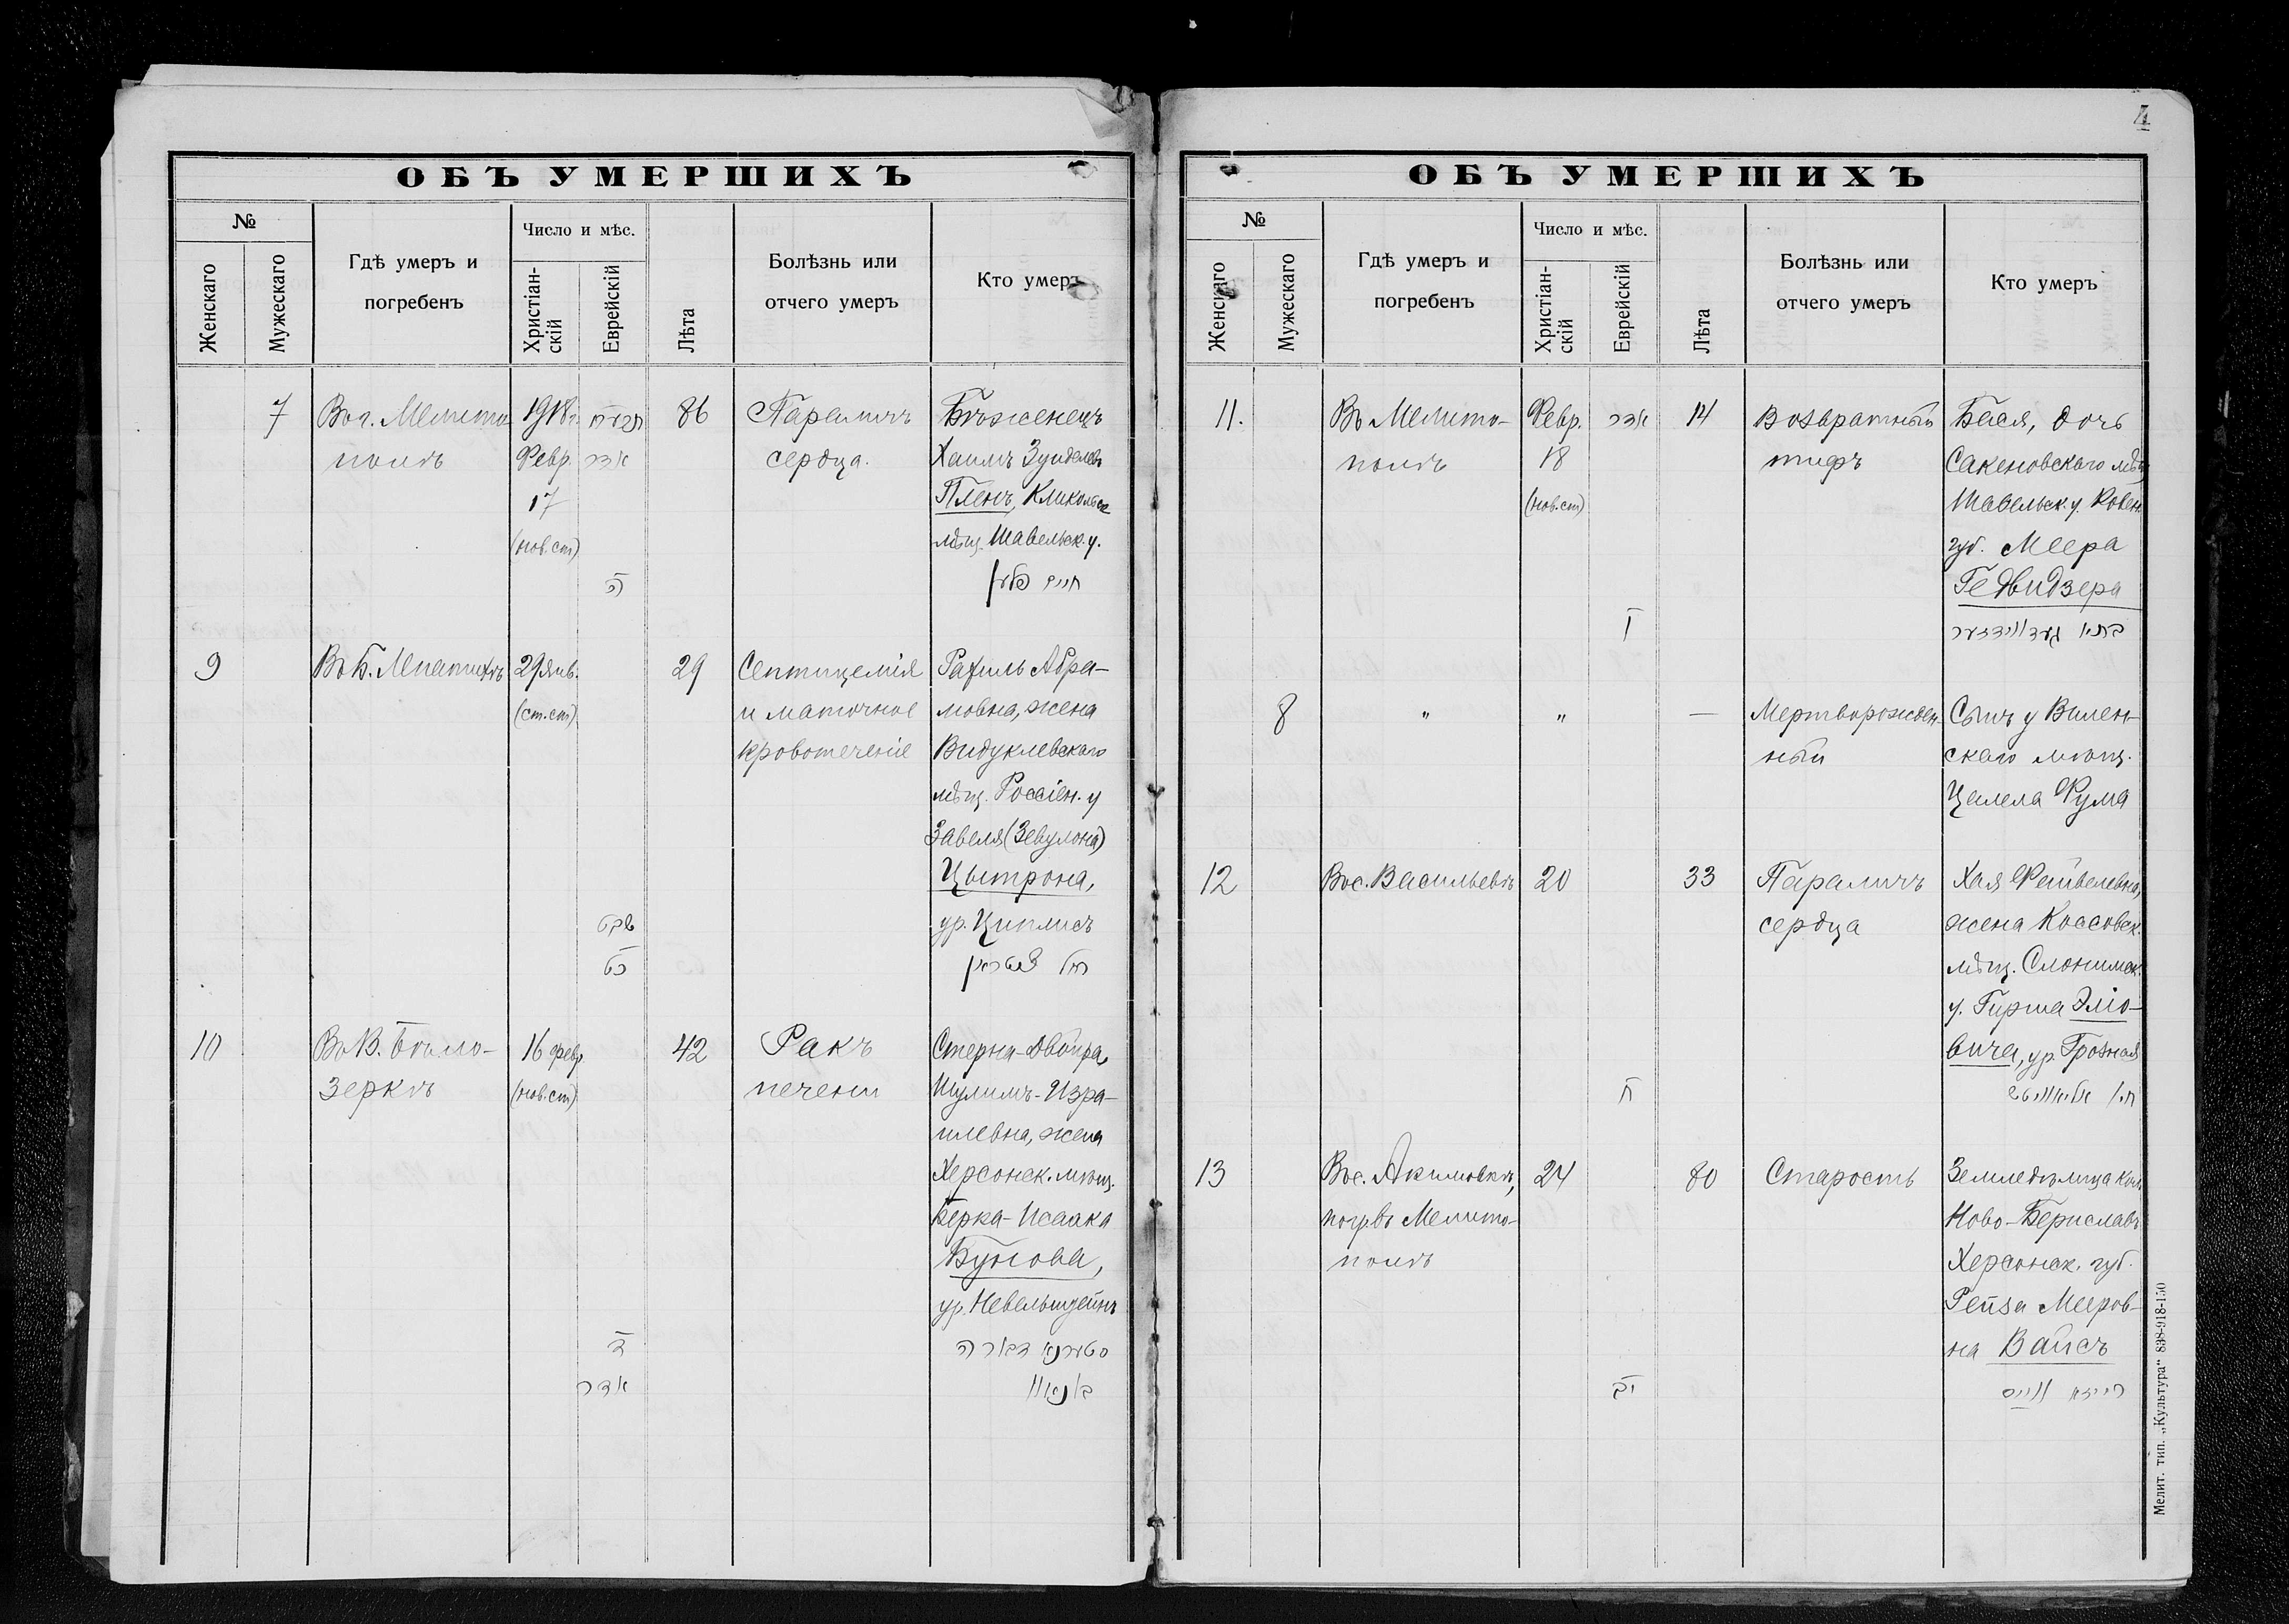 4
ОБЪ УМЕРШИХЪ
№
Женскаго
Мужескаго
Гдѣ умеръ и
погребенъ
Число и мѣс.
Христіан-
скій
Еврейскій
Лѣта
Болѣзнь или
отчего умеръ
Кто умеръ
7
Въ г. Мелито-
полѣ
1918 г.
Февр.
17
(нов. ст)
תרעח
אדר
ה
86
Параличъ
сердца.
Бѣженецъ
Хаимъ Зунделев
Пленъ, Кликольск
мѣщ. Шавельск. у.
חיים פלען
9
Въ Б. Лепатихѣ
29 янв.
(ст. ст)
שבט
כט
29
Септицемія
и маточное
кровотеченіе
Рахиль Абра-
мовна, жена
Видуклевскаго
мѣщ. Россіен. у
Завеля (Зевулона)
Цытрона,
ур. Циплисъ
רחל ציטרין
10
Въ В. Бѣло-
зеркѣ
16 февр
(нов. ст)
ד
אדר
42
Ракъ
печени
Стерна-Двойра
Шулимъ-Изра-
илевна, жена
Херсонск. мѣщ.
Берка-Исаака
Бунова,
ур. Невельштейнъ
סטערנא דבורה
בונאוו
ОБЪ УМЕРШИХЪ
№
Женскаго
Мужескаго
Гдѣ умеръ и
погребенъ
Число и мѣс.
Христіан-
скій
Еврейскій
Лѣта
Болѣзнь или
отчего умеръ
Кто умеръ
11.
Въ Мелито-
полѣ
Февр.
18
(нов. ст)
אדר
ו
14
Возвратный
тифъ
Бася, дочь
Сакеновскаго мѣщ
Шавельск. у. Ковен
губ. Меера
Гедвидзера
באסיא געדווידזער
8
"
"
—
Мертворожден-
ный
Сынъ у Вилен-
скаго мѣщ.
Цалела Фума
12
Въ с. Васильевкѣ
20
ח
33
Параличъ
сердца
Хая Файвелевна,
жена Коссовск.
мѣщ. Слонимск.
у. Гирша Эліо-
вича, ур. Грозная
חיה אליאוויטש
13
Въ с. Акимовкѣ,
погр въ Мелито-
полѣ
24
יב
80
Старость
Земледѣлица кол.
Ново-Бериславъ
Херсонск. губ.
Рейза Меиров-
на Вайсъ
רייזא ווייס
Мелит. тип. „Культура“ 838-918-150